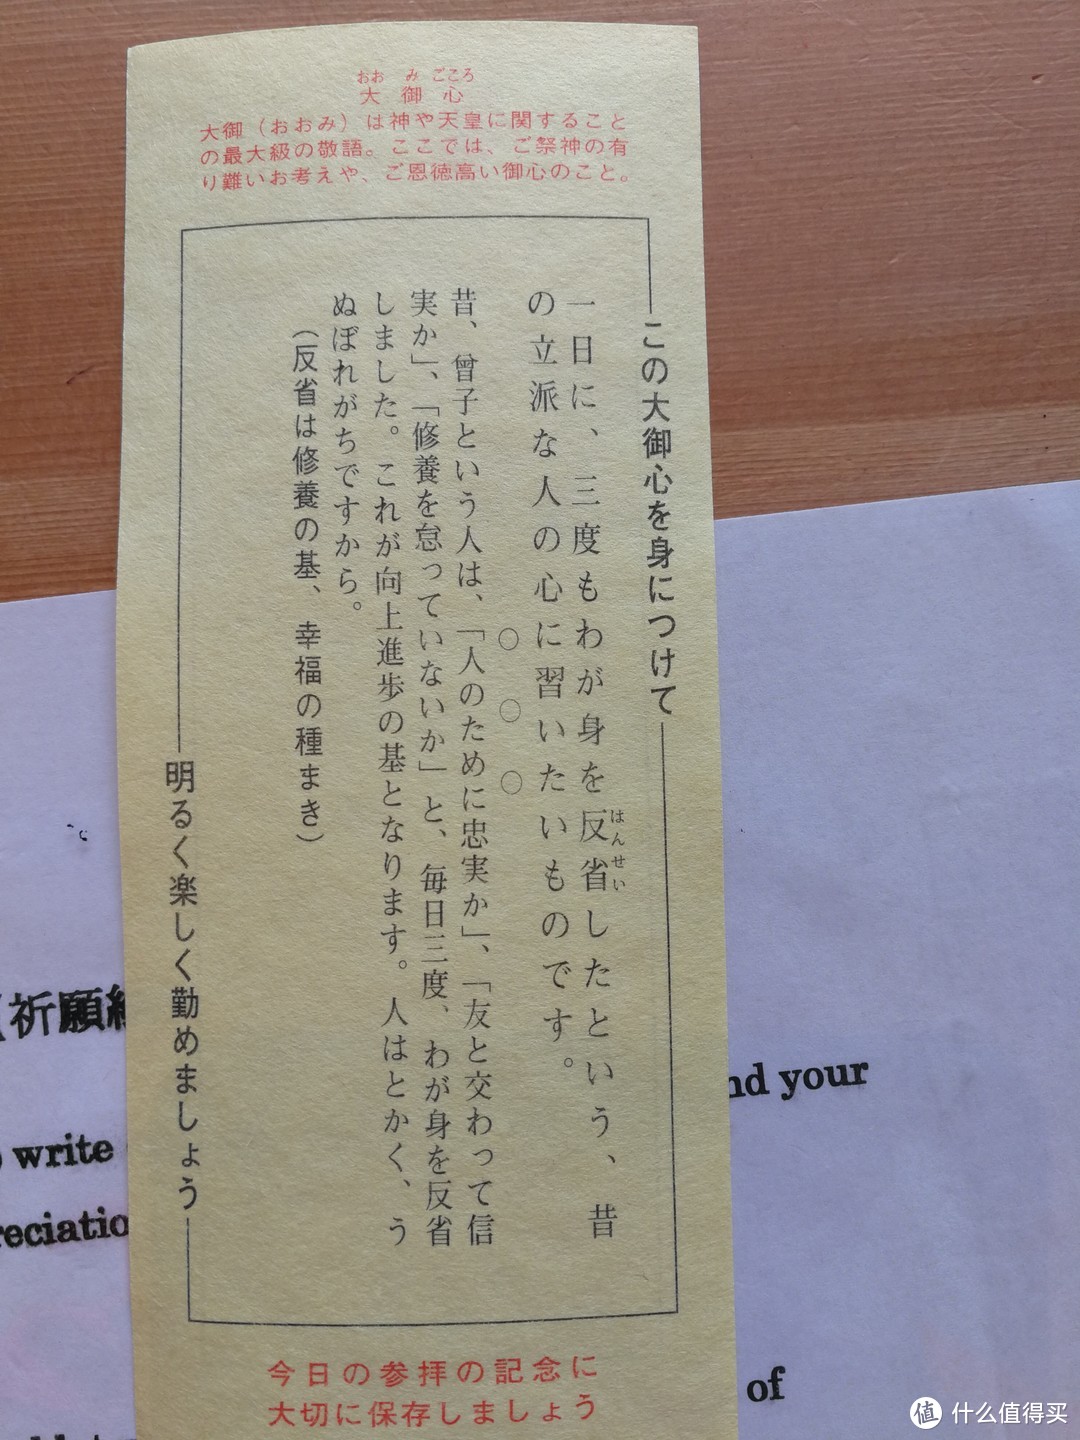 おおみごころ
大御心
大御（おおみ）は神や天皇に関すること
の最大級の敬語。ここでは、ご祭神の有
り難いお考えや、ご恩徳高い御心のこと。
この大御心を身につけて
一日に、三度もわが身を反省したという、昔
はんせい
の立派な人の心に習いたいものです。
○○○
昔、曾子という人は、「人のために忠実か」、「友と交わって信
実か」、「修養を怠っていないか」と、毎日三度、わが身を反省
しました。これが向上進歩の基となります。人はとかく、う
ぬぼれがちですから。
（反省は修養の基、幸福の種まき）
明るく楽しく勤めましょう
今日の参拝の記念に
大切に保存しましょう
祈願
nd your
write
reciatio
of
值 什么值得买